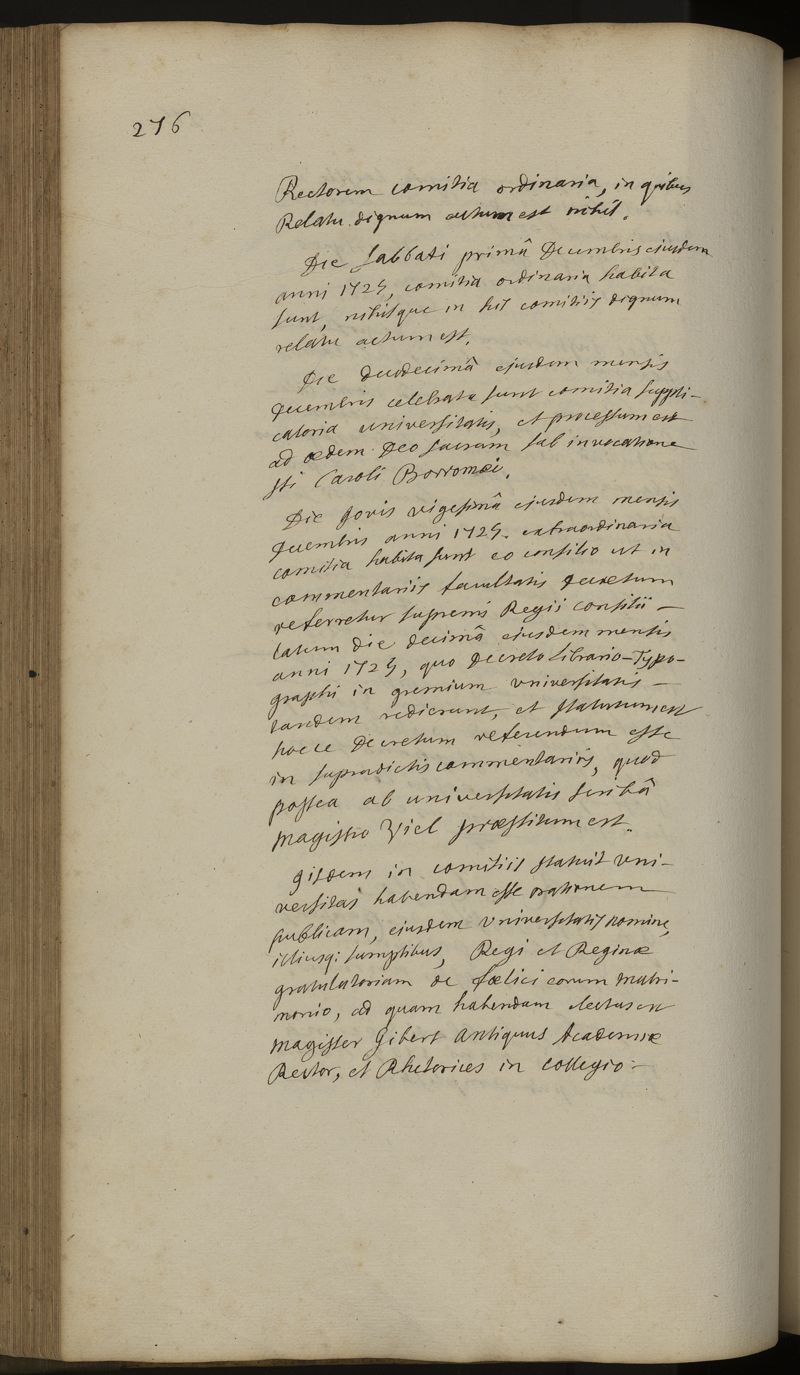 276
Rectorem comitia ordinaria, in quibus
Relatu dignum actum est nihil.
Die Sabbati primâ Decembris ejusdem
anni 1725, comitia ordinaria habita
sunt, nihilque in his comitiis dignum
relatu actum est.
Die duodecimâ ejusdem mensis
Decembris celebrata sunt comitia suppli-
catoria universitatis, et processum est
ad ædem Deo sacram sub invocatione
sti Caroli Borromæi.
Die Jovis vigesimâ ejusdem mensis
Decembris anni 1725. extraordinaria
comitia habita sunt eo consilio ut in
commentariis facultatis decretum
referretur supremi Regii consilii –
latum die decimâ ejusdem mensis
anni 1725, quo decreto librario-Typo-
graphi in gremium universitatis –
tandem redierunt, et statutum est
hocce Decretum referendum esse
in supradictis commentariis, quod
postea ab universitatis scribâ
magistro Viel præstitum est.
Iisdem in comitiis statuit uni-
versitas habendam esse orationem
publicam, ejusdem Universitatis nomine,
illiusq; sumptibus, Regi et Reginæ
gratulatoriam de fœlici eorum matri-
monio, ad quam habendam electus est
magister Gibert antiquus Academiæ
Rector, et Rhetorices in collegio –